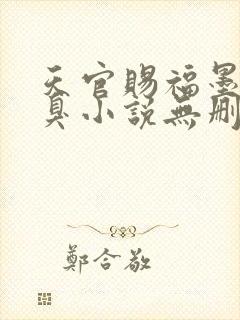 天官賜福墨
臭小説無刪
鄭合敬